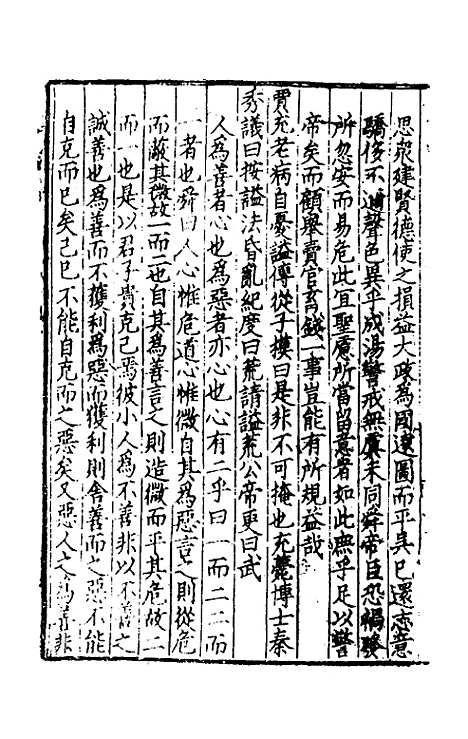 思衆建賢德使之損益大政為國遠圖而平吳已還志意
驕侈不邇聲色異乎成湯警戒無虞未同舜帝臣恐禍發
所忽安而易危此宜聖慮所當留意者如此庶乎足以警
帝矣而顧舉賣官育錢一事豈能有所規益哉
賈充老病自憂謚傳從子模曰是非不可掩也充薨博士秦
秀議曰按謚法昏亂紀度曰荒請謚荒公帝更曰武
人為善者心也為惡者亦心也心有二乎曰一而二二而
一者也舜曰人心惟危道心惟微自其為惡言之則從危
而蔽其微故一而二也自其為善言之則造微而平其危故二
而一也是以君子貴克己焉彼小人為不善非以不善之
誠善也為善而不獲利為惡而獲利則舍善而之惡不能
自克而已矣己已不能自克而之惡矣又惡人之為善非